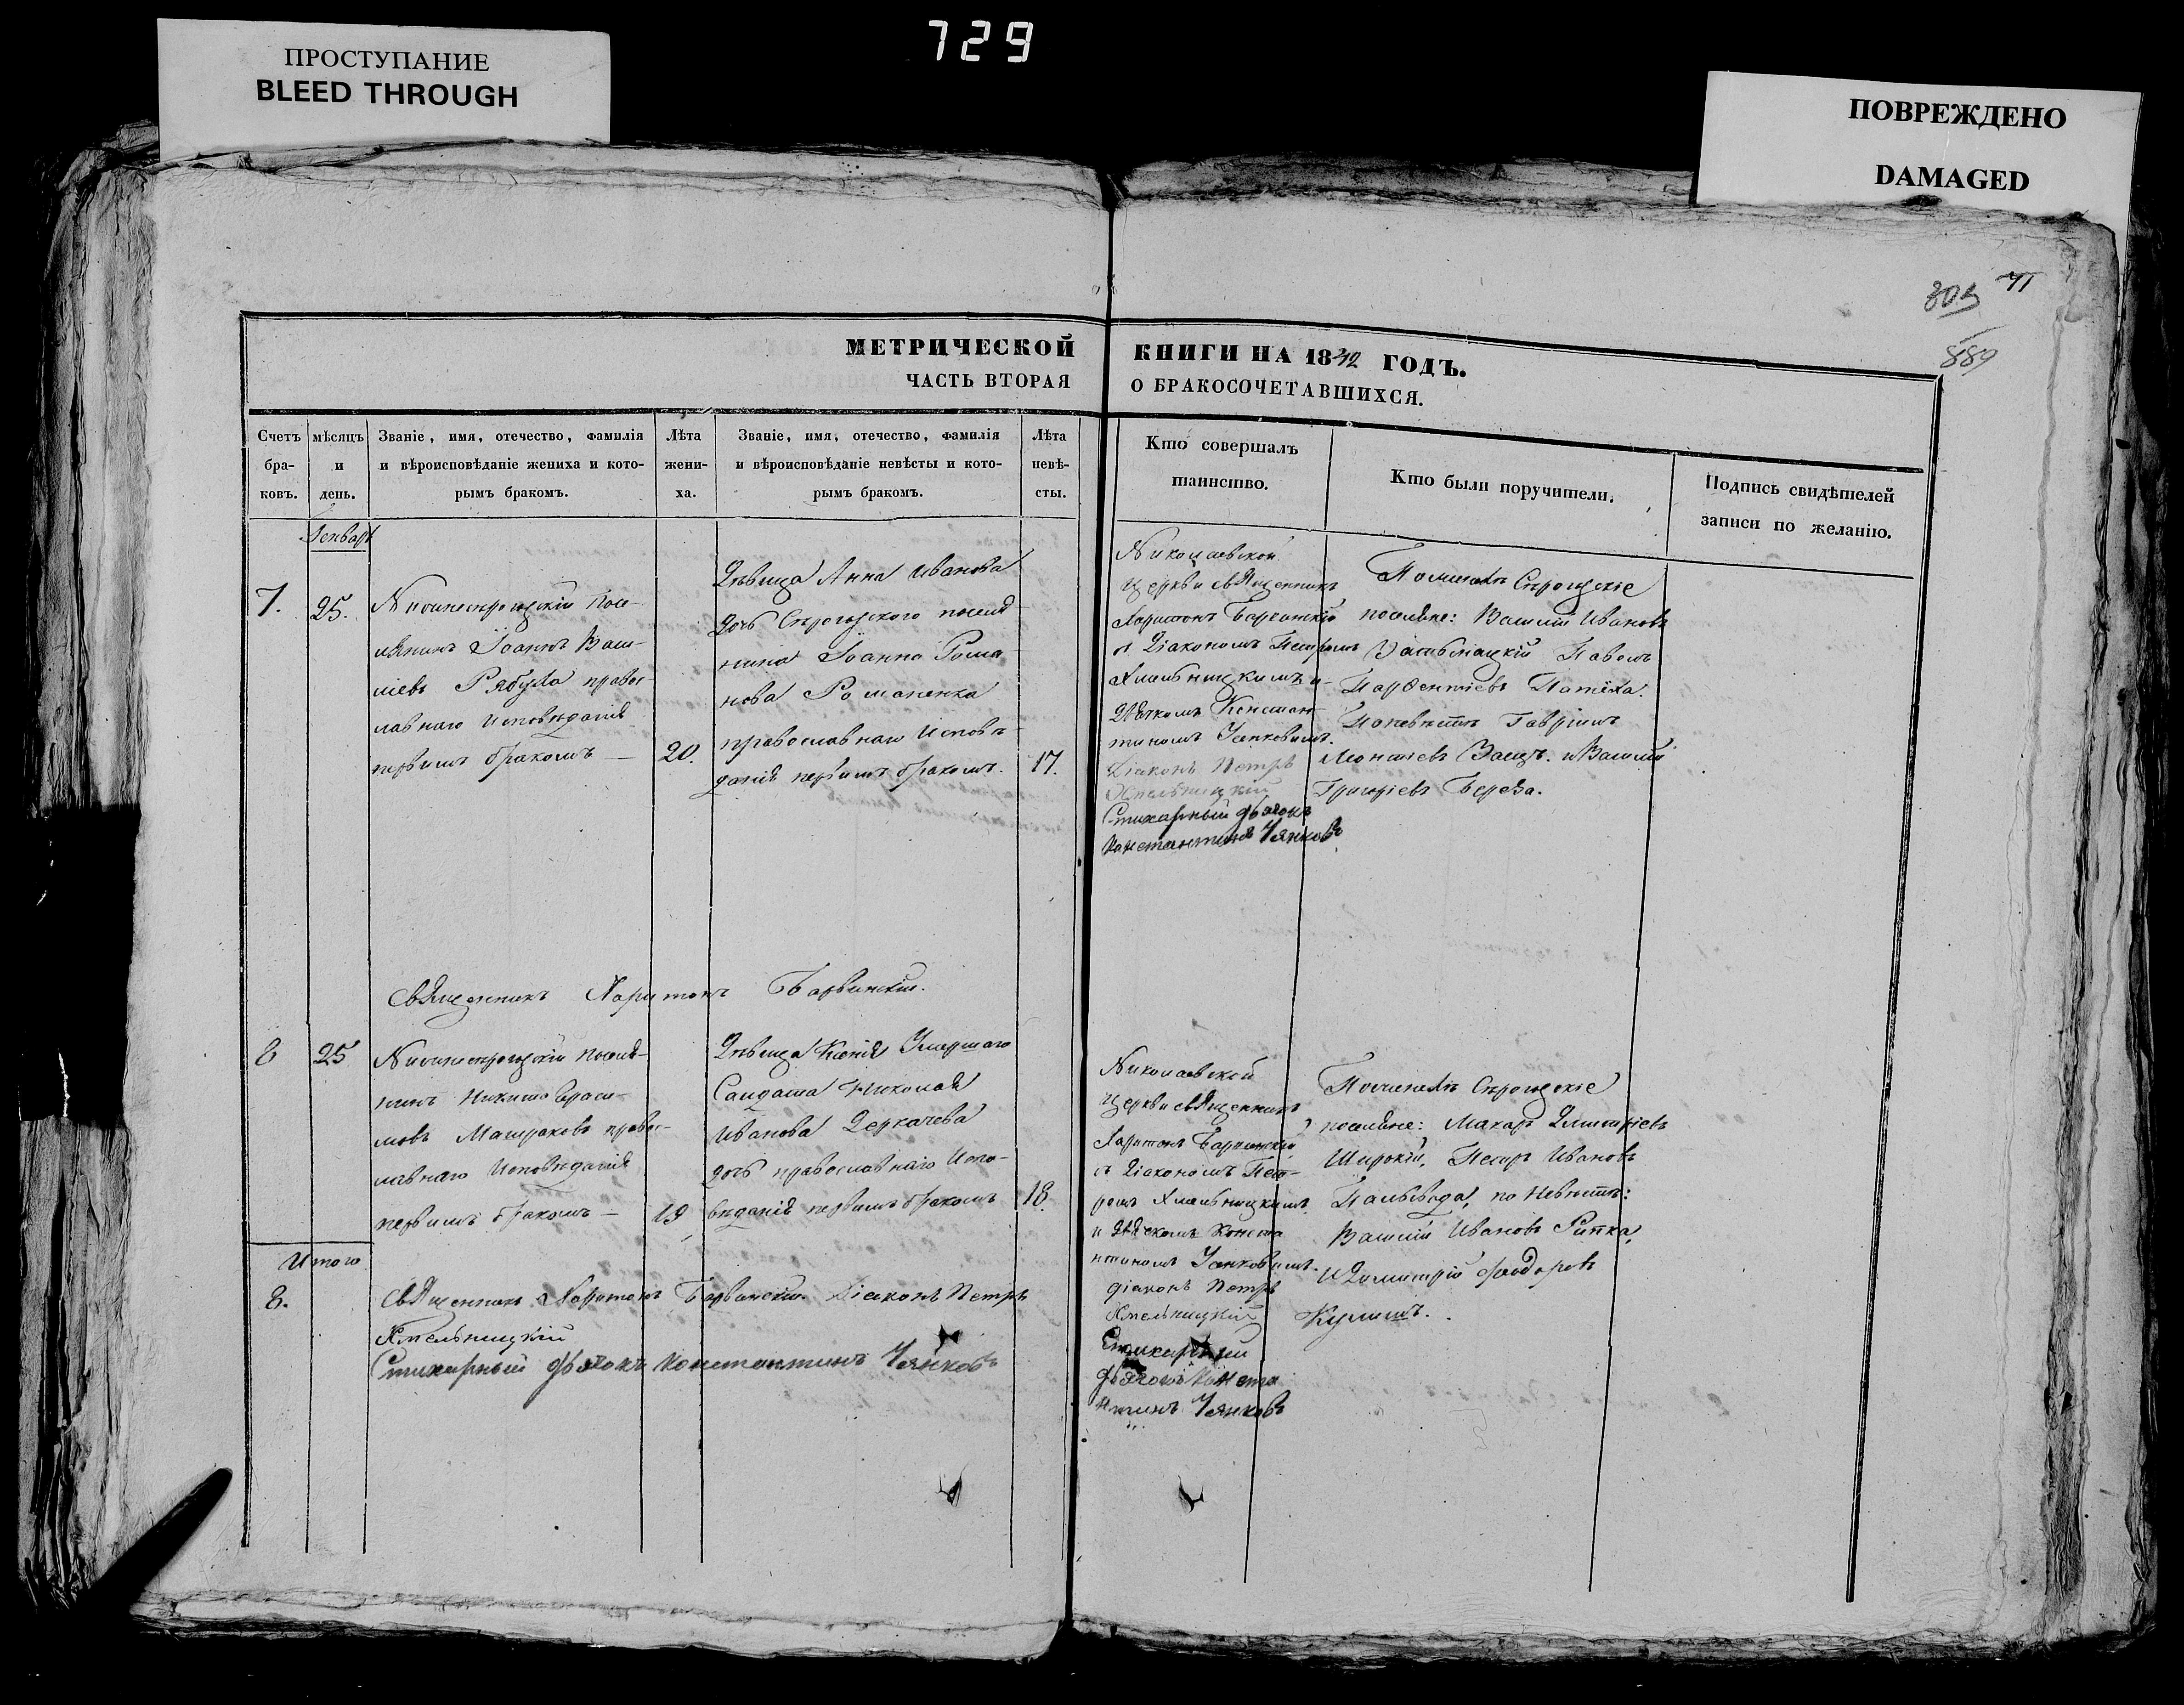 729
ПРОСТУПАНИЕ
BLEED THROUGH
ПОВРЕЖДЕНО
DAMAGED
71
889
МЕТРИЧЕСКОЙ
ЧАСТЬ ВТОРАЯ
КНИГИ НА 1842 ГОДЪ.
О БРАКОСОЧЕТАВШИХСЯ.
Счетъ бра-ковъ.
мѣсяцъ и день.
Званіе, имя, отечество, фамилія
и вѣроисповѣданіе жениха и кото-
рымъ бракомъ.
Лѣта жени-ха.
Званіе, имя, отечество, фамилія
и вѣроисповѣданіе невѣсты и кото-
рымъ бракомъ.
Лѣта невѣ-сты.
Кто совершалъ
таинство.
Кто были поручители.
Подпись свидѣтелей
записи по желанію.
Генварь
7.
25.
Нижнесѣрогозскій Посе-
лянинъ Іоаннъ Васи-
ліевъ правос-
лавнаго Исповѣданія
первымъ бракомъ —
20.
Дѣвица Анна Иванова
дочь Сѣрогозского поселя-
нина Іоанна Рома-
нова Романенка
православнаго Исповѣ-
данія первымъ бракомъ.
17.
Николаевской
Церкви священникъ
Харитонъ Барвинскій
съ Діакономъ Петромъ
Хмельницкимъ и
Дьячкомъ Констан-
тиномъ
Діаконъ Петръ
Хмельницкій
Стихарный дьячокъ
Константинъ
Сѣрогозскіе
поселяне: Василій Ивановъ
Павелъ
Парфентіевъ
По невѣстѣ Гавріилъ
Заецъ. и Василій
Григоріевъ Береза.
Священникъ Харитонъ Барвинскій.
8
25
Нижнесѣрогозскій поселя-
нинъ Никита Гераси-
мовъ правос-
лавнаго Исповѣданія
первымъ бракомъ —
19
Дѣвица Ксенія Умершаго
Солдата Николая
Иванова Деркачева
дочь православнаго Испо-
вѣданія первымъ бракомъ
18.
Николаевской
Церкви священникъ
Харитонъ Барвинскій
съ Діакономъ Пет-
ромъ Хмельницкимъ
и Дьячкомъ Конста
нтиномъ
діаконъ Петръ
Хмельницкій
Стихарный
дьячокъ Конста
нтинъ
Сѣрогозскіе
поселяне: Макаръ Димитріевъ
Широкій, Петръ Ивановъ
Пальвода, по Невѣстѣ:
Василій Ивановъ Рипка,
и Димитрій Феодоровъ
Кулишъ.
Итого
8.
Священникъ Харитонъ Барвинскій. Діаконъ Петръ
Хмельницкій
Стихарный дьячокъ Константинъ